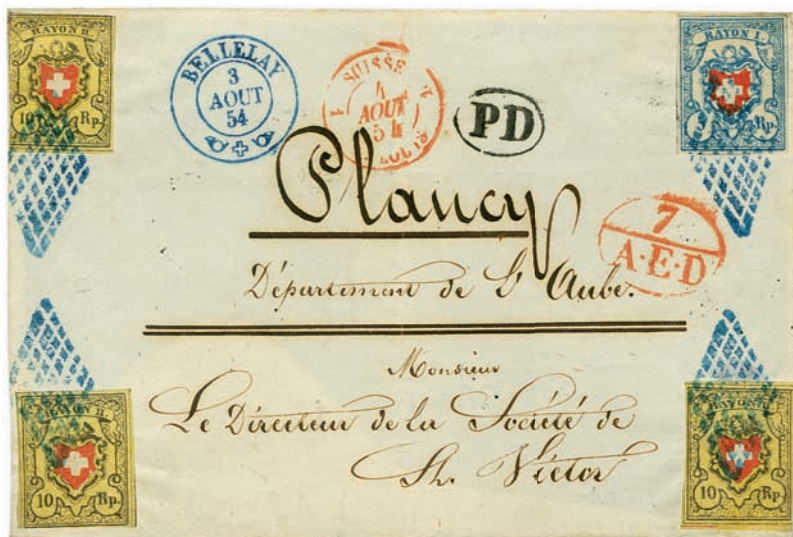 RAYON II.
10 Rp.
BELLELAY
3
AOUT
54
SUISSE
4
AOUT
54
PD
RAYON I.
Rp.
Plancy
7
A·E·D
Département de l'Aube.
Monsieur
Le Directeur de la Société de
St. Victor
RAYON II.
10 Rp.
RAYON II.
10 Rp.